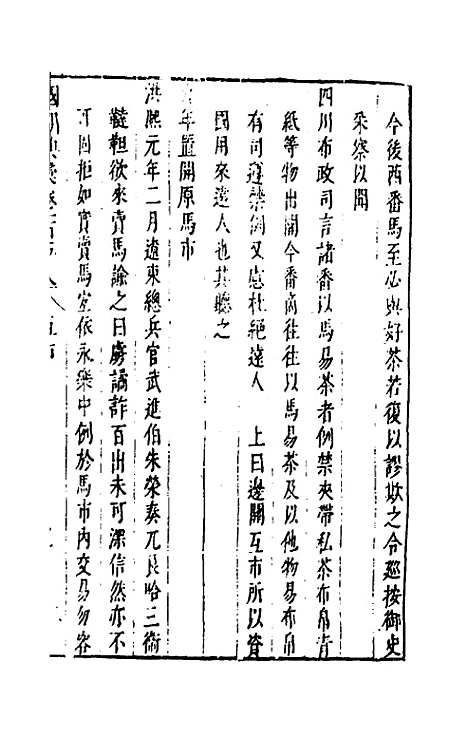 今後西番馬至必與好茶若復以謬欺之令廵按御史
采察以聞
四川布政司言諸番以馬易茶者例禁夾帶私茶布帛青
紙等物出關今番商往往以馬易茶及以他物易布帛
有司遵禁例又慮杜絕遠人　上曰邊關互市所以資
國用來遠人也其聽之
年置開原馬市
洪熙元年二月遼東總兵官武進伯朱榮奏兀良哈三衛
韃靼欲來賣馬諭之曰虜譎詐百出未可深信然亦不
可固拒如實賣馬宜依永樂中例於馬市內交易勿容